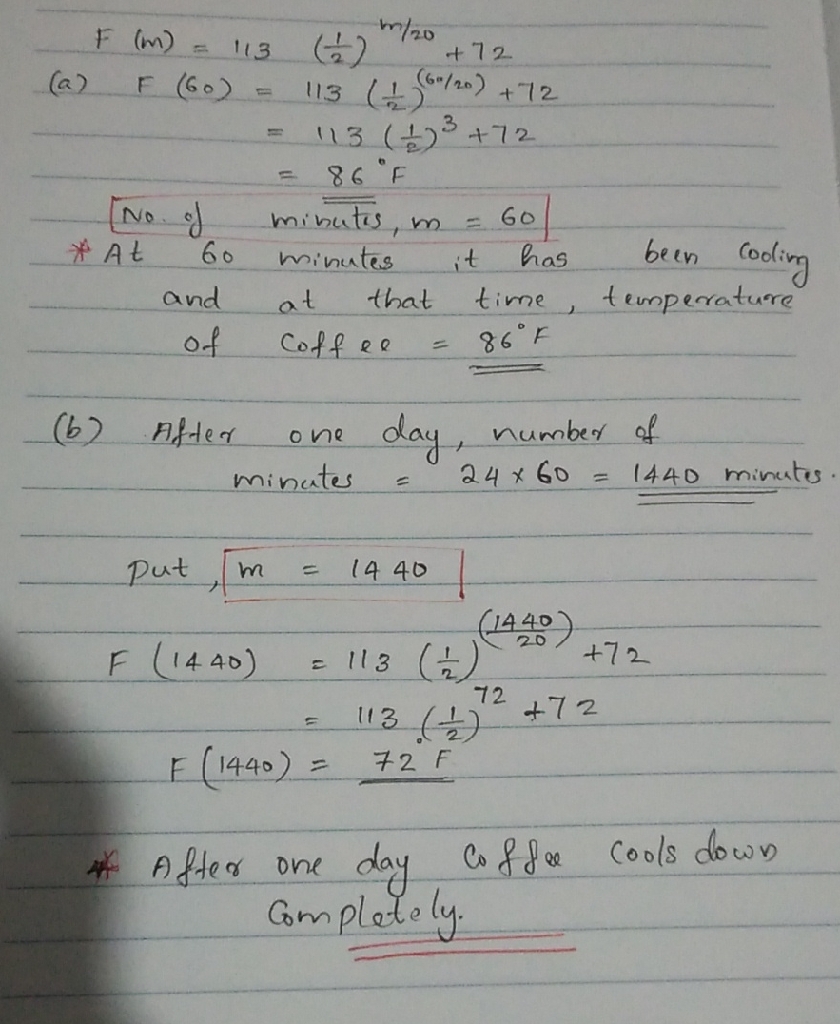 F (m) = 113 (1/2)^m/20 + 72
(a) F (60) = 113 (1/2)^(60/20) + 72
= 113 (1/2)^3 + 72
= 86°F
No. of minutes, m = 60
* At 60 minutes it has been cooling
and at that time, temperature
of Coffee = 86°F
(b) After one day, number of
minutes = 24 x 60 = 1440 minutes.
Put, m = 1440
F (1440) = 113 (1/2)^(1440/20) + 72
= 113 (1/2)^72 + 72
F (1440) = 72°F
* After one day Coffee Cools down
Completely.